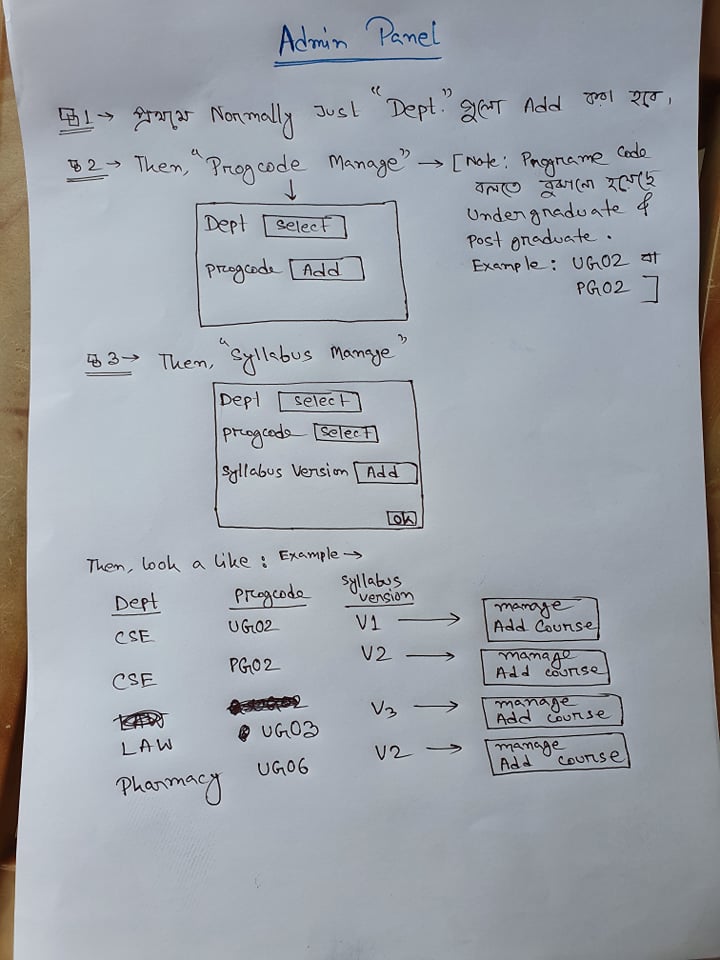 Admin Panel
1 → প্রথমে Normally Just "Dept." গুলো Add করা হবে,
2 → Then, "Progcode Manage" → [Note: Programe Code
বলতে বুঝানো হয়েছে
Undergraduate &
Post graduate.
Example: UG02 বা
PG02 ]
Dept select
progcode Add
3 → Then, "Syllabus Manage"
Dept select
progcode select
syllabus version Add
OK
Then, look a like: Example →
Dept Progcode Syllabus version
CSE UG02 V1 → manage Add Course
CSE PG02 V2 → manage Add course
LAW UG03 V3 → manage Add course
Pharmacy UG06 V2 → manage Add course